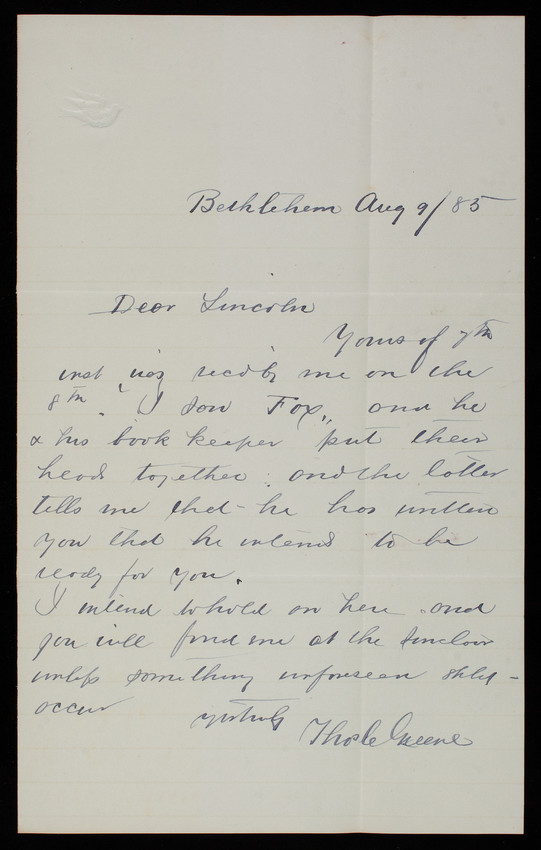 Bethlehem Aug 9/85
Dear Lincoln
Yours of 7th
inst was recd by me on the
8th. I saw Fox, and he
& his book keeper put their
heads together: and the latter
tells me that he has written
you that he intends to be
ready for you.
I intend to hold on here and
you will find me at the Sinclair
unless something unforeseen shld
occur
yrs truly
Thos L Greene